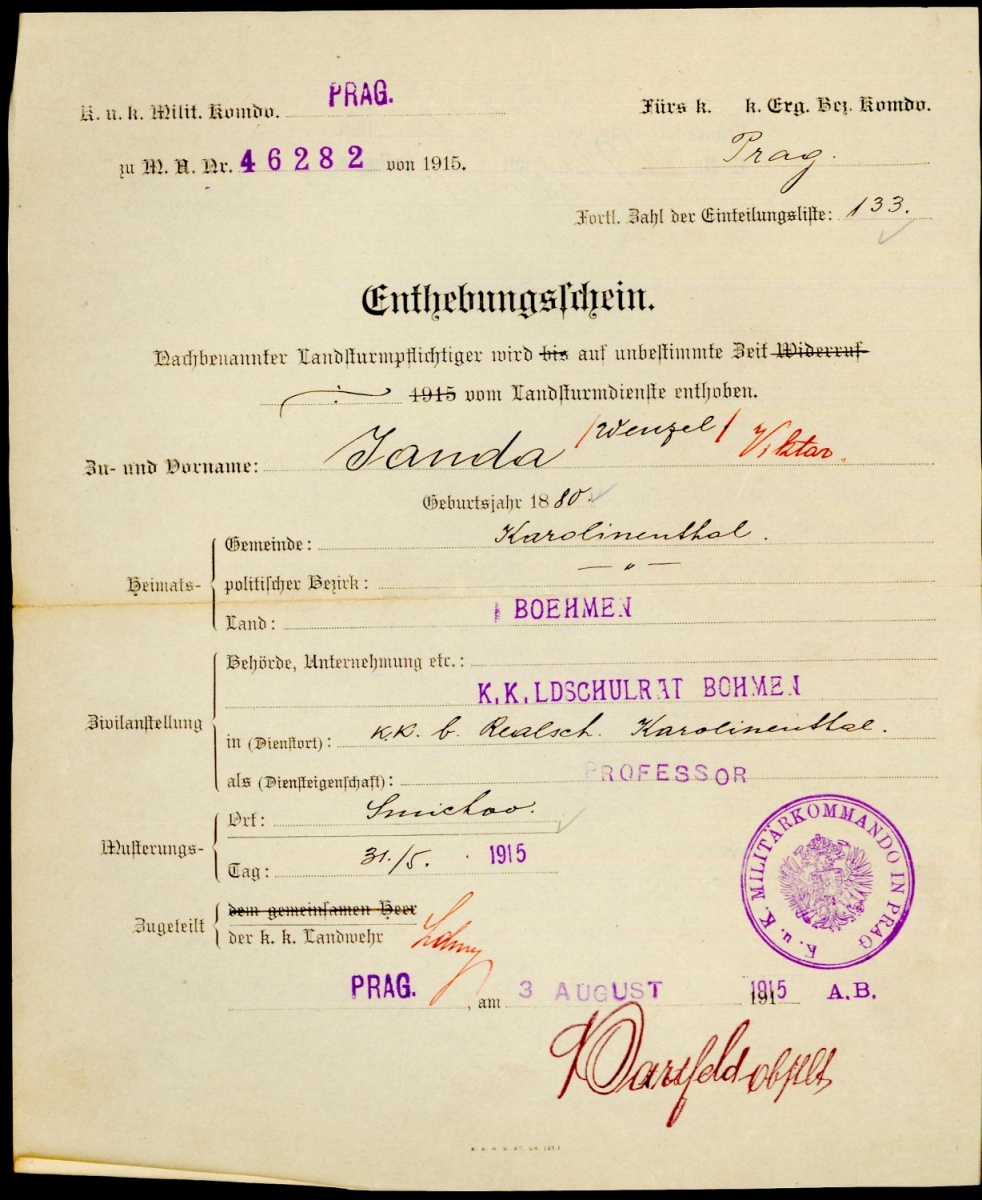 K. u. k. Milit. Komdo. PRAG.
Fürs k. k. Erg. Bez. Komdo.
Prag.
zu M. A. Nr. 46282 von 1915.
Fortl. Zahl der Einteilungsliste: 133.
Enthebungsschein.
Nachbenannter Landsturmpflichtiger wird bis auf unbestimmte Zeit Widerruf
1915 vom Landsturmdienste enthoben.
Zu- und Vorname: Janda /Wenzel/ Viktor.
Geburtsjahr 1880.
Heimats-
Gemeinde: Karolinenthal.
politischer Bezirk: — " —
Land: BOEHMEN
Zivilanstellung
Behörde, Unternehmung etc.:
K.K. LDSCHULRAT BOHMEN
in (Dienstort): k.k. b. Realsch. Karolinenthal.
als (Diensteigenschaft): PROFESSOR
Musterungs-
Ort: Smichov.
Tag: 31./5. 1915
Zugeteilt
dem gemeinsamen Heer
der k. k. Landwehr
K. u. K. MILITÄRKOMMANDO IN PRAG
PRAG., am 3 AUGUST 1915 A.B.